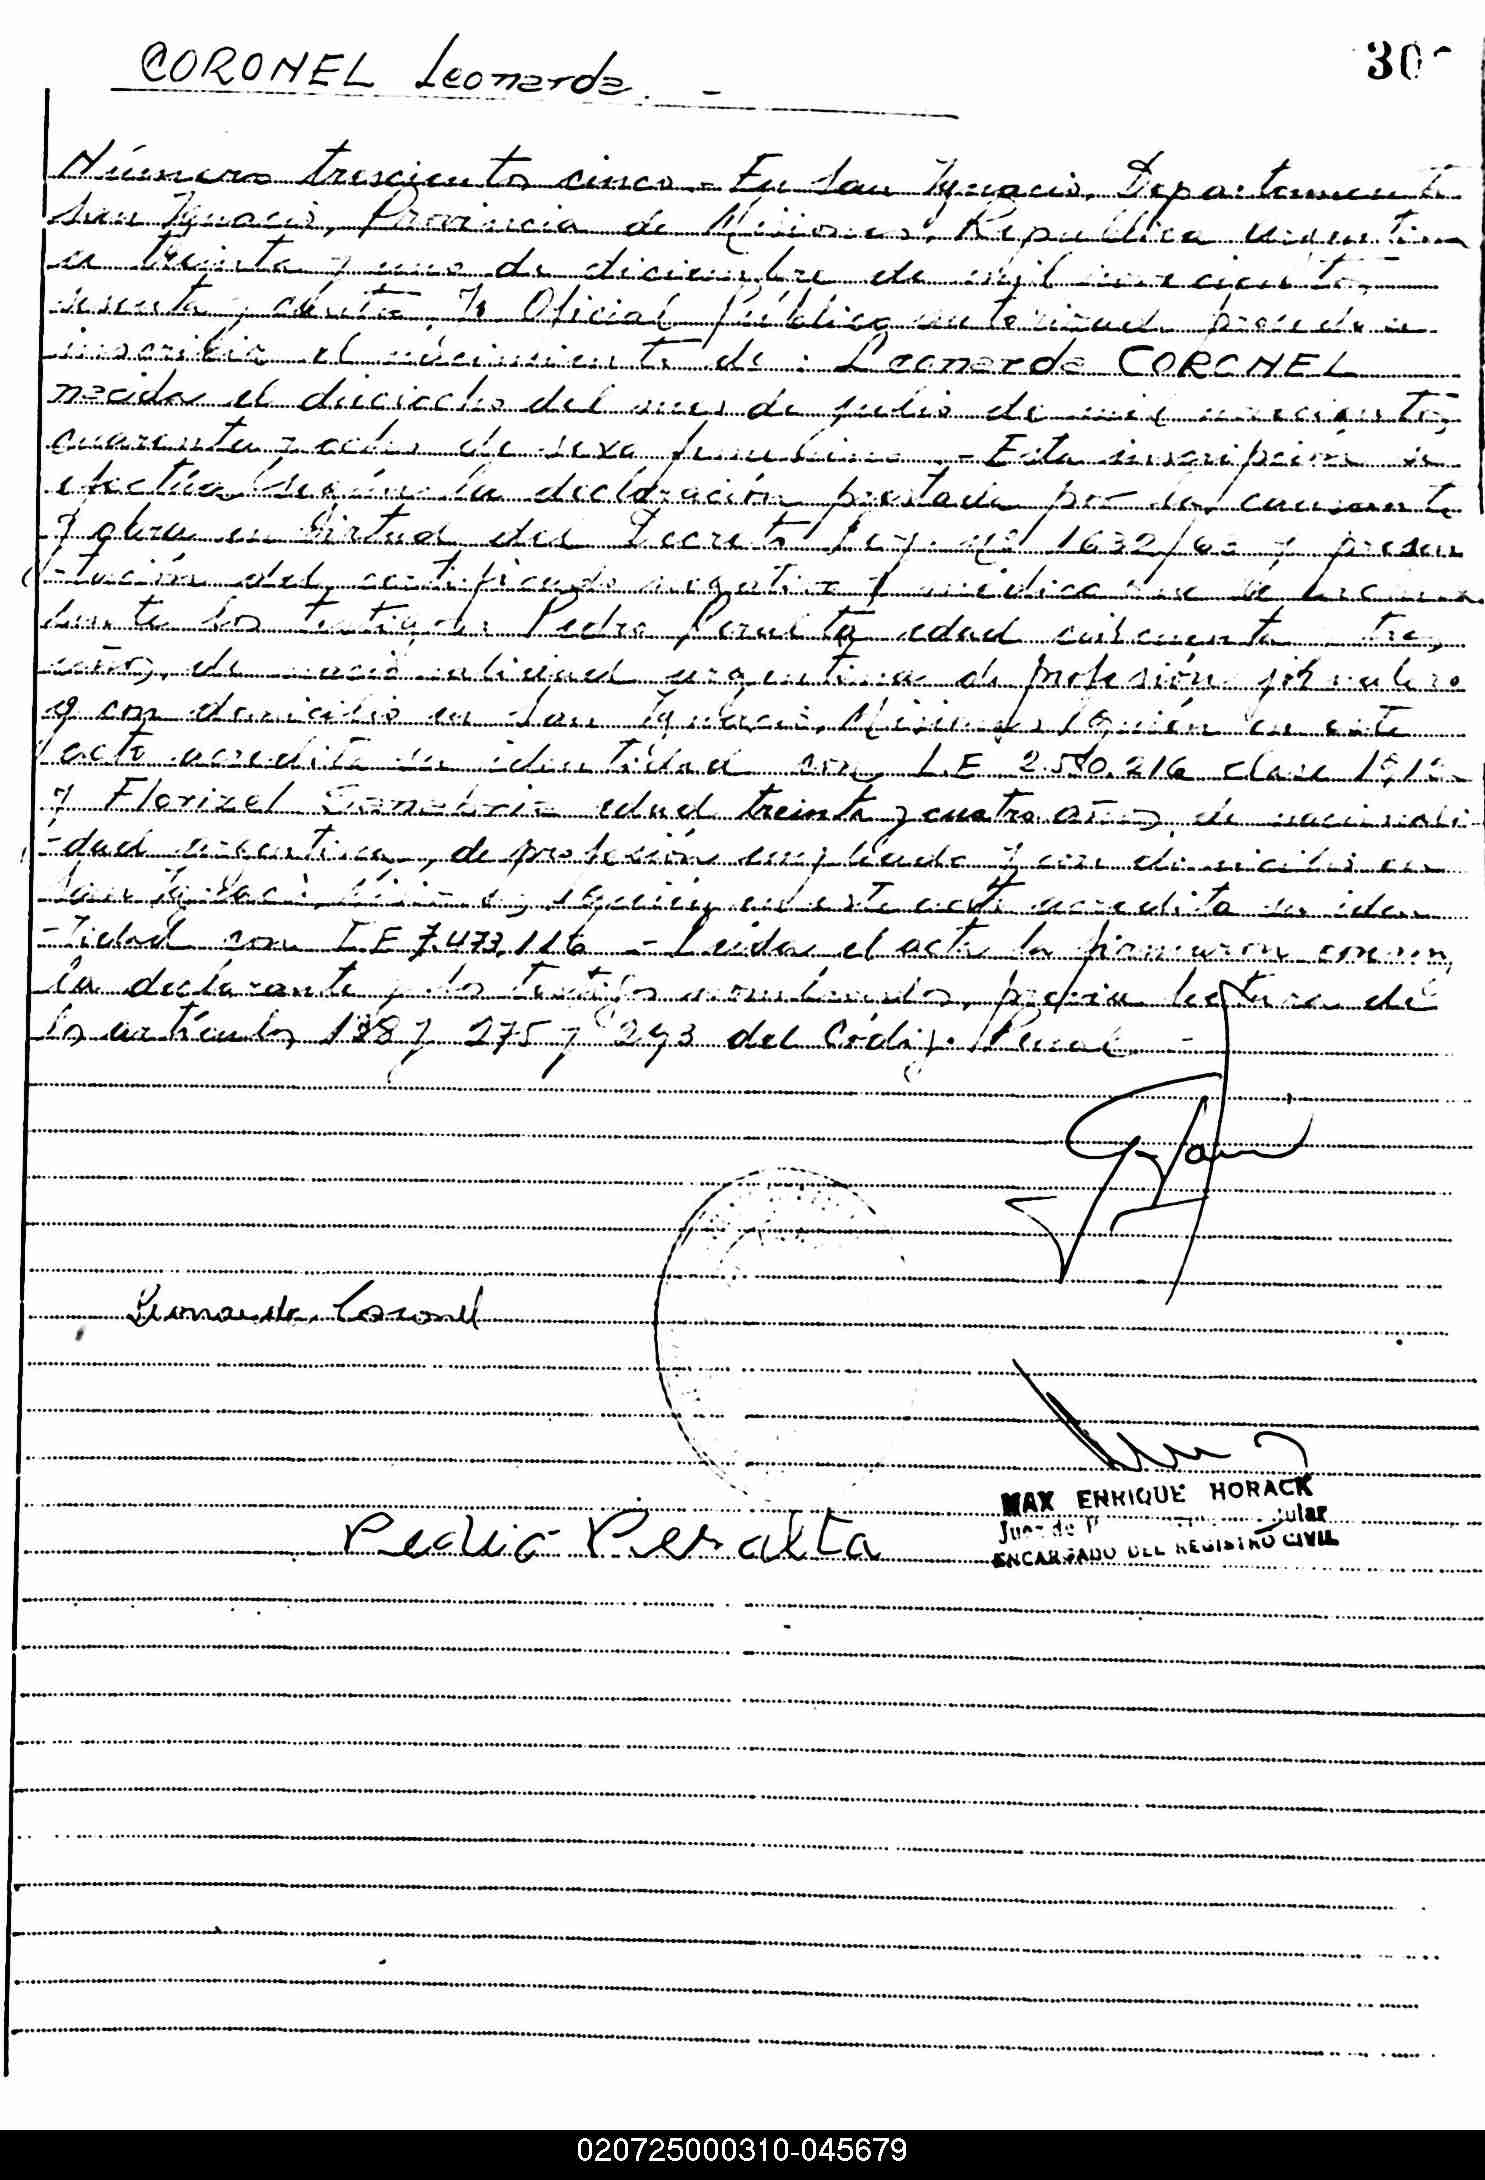 CORONEL Leonarda. -
30
Número trescientos cinco - En San Ignacio, Departamento
San Ignacio, Provincia de Misiones, República Argentina
a treinta y uno de diciembre de mil novecientos
sesenta y cuatro, Yo Oficial Público autorizado procedo a
inscribir el nacimiento de: Leonarda CORONEL
nacida el dieciocho del mes de julio de mil novecientos
cuarenta y ocho de sexo femenino. - Esta inscripción se
efectúa según la declaración prestada por la causante
y obra en virtud del Decreto Ley Nº 1632/63 y presen
-tación del certificado negativo y médico
ante los testigos: Pedro Peralta edad cincuenta y tres
años, de nacionalidad argentina de profesión jornalero
y con domicilio en San Ignacio, Misiones, quién en este
acto acredita su identidad con L.E 2.580.216 clase
y Florizel edad treinta y cuatro años, de nacionali-
-dad argentina, de profesión empleado y con domicilio en
San Ignacio, Misiones, quién en este acto acredita su iden
-tidad con L.E 7.473.116 - Leída el acta la firmaron conmigo,
la declarante y los testigos nombrados, previa lectura de
los artículos 138 y 275 y 293 del Código Penal -
Leonarda Coronel
MAX ENRIQUE HORACK
Juez de
ENCARGADO DEL REGISTRO CIVIL
Pedro Peralta
020725000310-045679